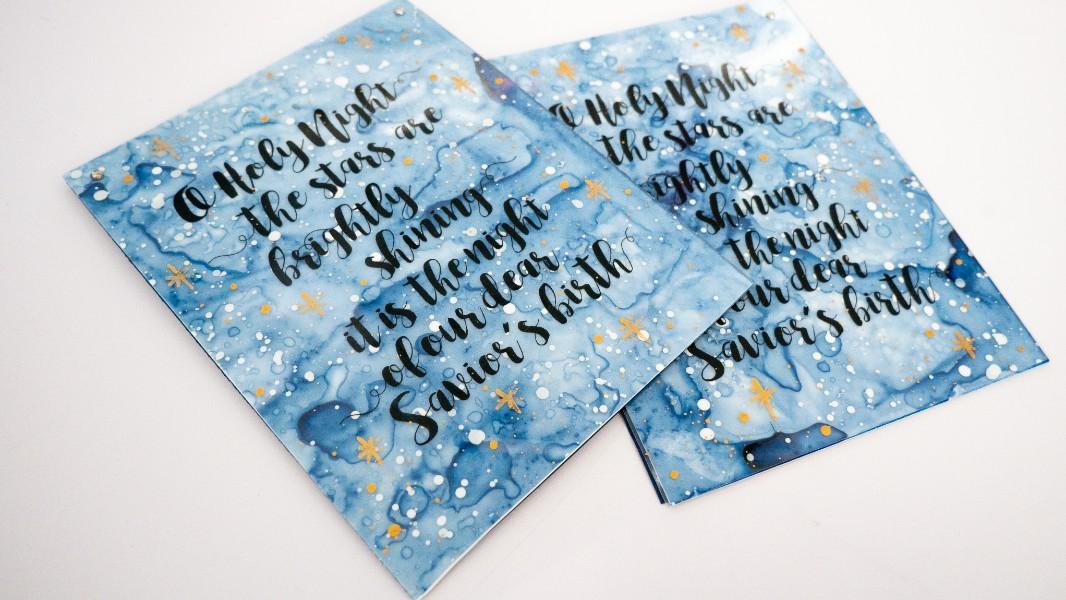 O Holy Night
the stars are
brightly
shining
it is the night
of our dear
Savior's birth
O Holy Night
the stars are
ightly
shining
the night
our dear
Savior's birth